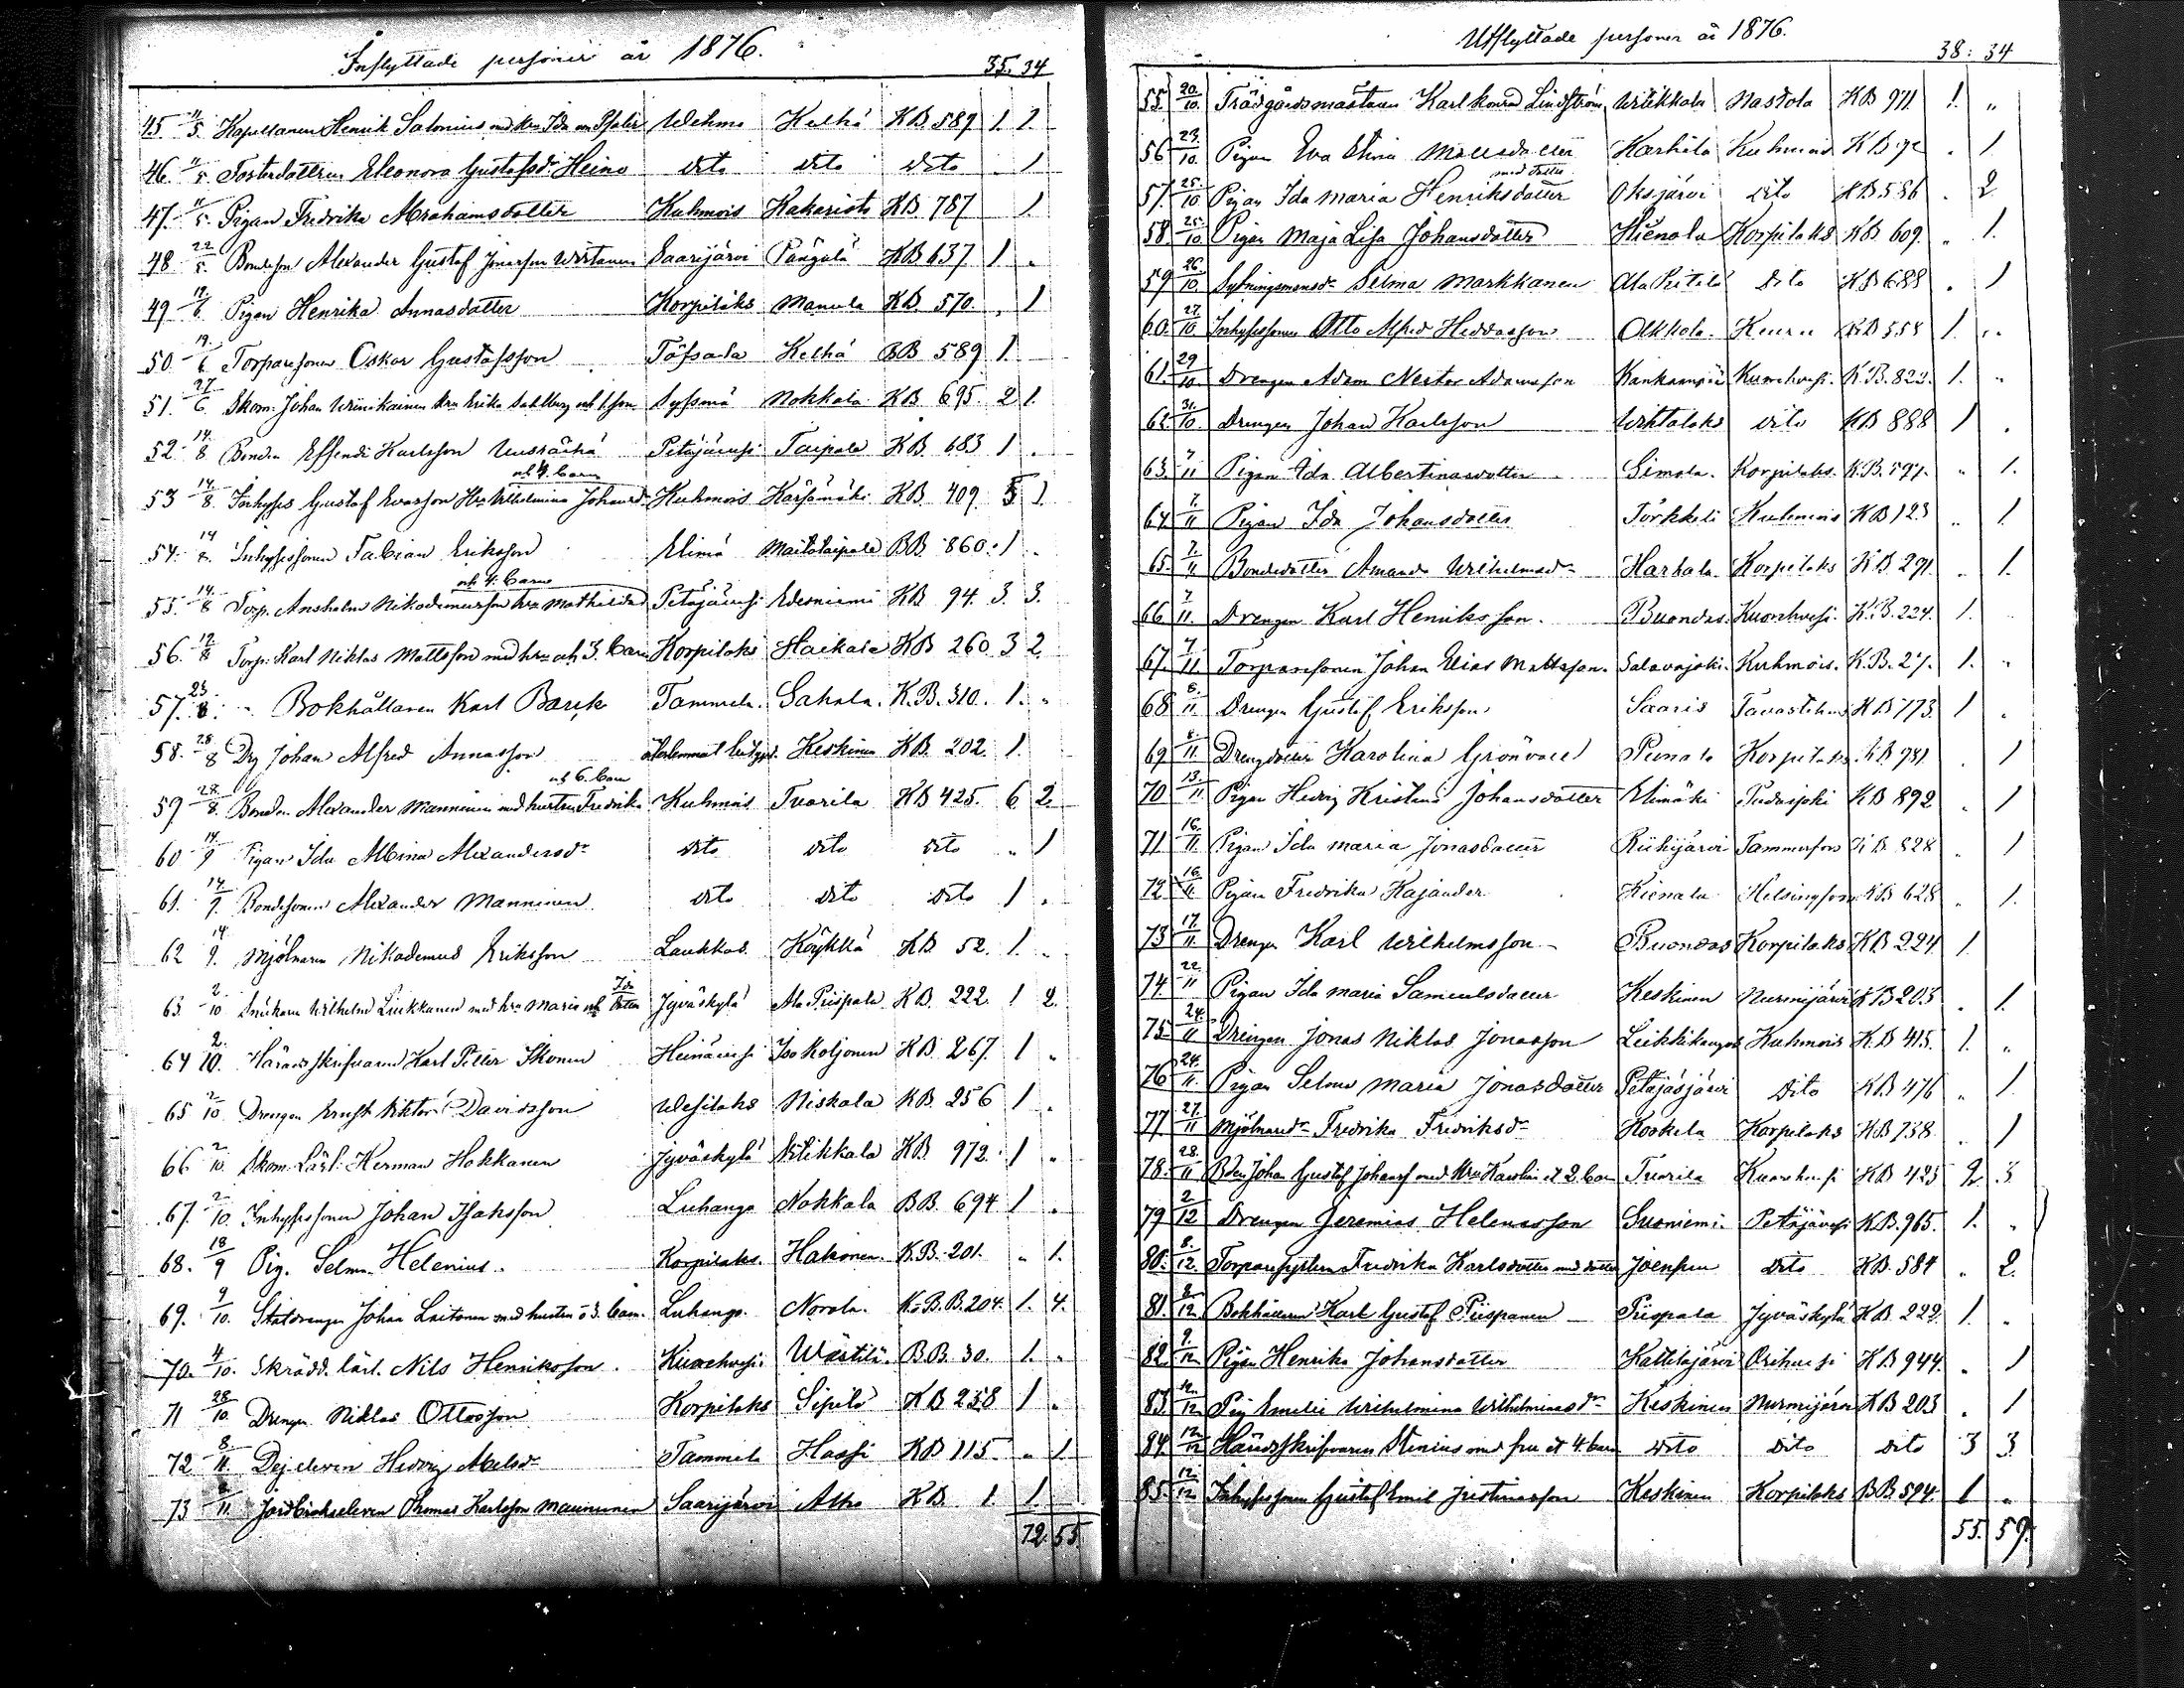 Inflyttade personer år 1876.
35. 34
45. 11/5. Kapellanen Henrik Salonius med hru Ida Wehmo Kelhä KB 589 1. 1.
46. 11/5. Fosterdottren Eleonora Gustafsdr Heino dito dito dito . 1
47. 11/5. Pigan Fredrika Abrahamsdotter Kuhmois Kakaristo KB 787 1.
48 22/5. Bondeson Alexander Gustaf Jonasson Wirtanen Saarijärvi Pängälä KB 637 1 "
49 12/6. Pigan Henrika Annasdotter Korpilaks Manula KB. 570. " 1
50 19/6 Torparesonen Oskar Gustafsson Töfsala Kelhä BB 589 1.
51. 27/6 Skom: Johan Wiinikainen hru Erika Sahlberg och 1 son Syssmä Nokkala KB 695. 2 1.
52. 14/8 Bonden Effendi Karlsson Uusrächä Petäjävesi Taipale KB. 683 1 .
och 4 barn
53 14/8. Inhyses Gustaf Evasson Hru Wilhelmina Johansd. Kuhmois Kärsämäki KB. 409. 5 1.
54. 14/8. Inhysessonen Fabian Eriksson Elimä Maitolaipale BB. 860. 1 .
och 4. barn
55. 14/8 Torp. Ansholm Nikodemusson hru Mathilda Petäjävesi Edesniemi KB 94. 3. 3.
56. 19/8 Torp: Karl Niklas Mattsson med hru och 3. barn Korpilaks Haikala KB 260 3 2.
57. 23/8. " Bokhållaren Karl Barck Tammela. Sahala. K.B. 310. 1. "
58. 28/8 Drg Johan Alfred Annasson Keskinen KB. 202. 1.
och 6. barn
59 28/8. Bonden Alexander Manninen med hustru Fredrika Kuhmois Tuorila KB 425. 6 2.
60 14/9 Pigan Ida Albina Alexandersdr dito dito dito " 1
61. 14/9. Bondesonen Alexander Manninen dito dito dito 1 .
62 14/9. Mjölnaren Nikodemus Eriksson Laukkas Köykkä KB 52. 1. "
Ida
63. 2/10 Snickaren Wilhelm Liukkanen med hru Maria och dotter Jyväskylä Ala Piispala KB. 222. 1 2.
64 2/10. Häradsskrifvaren Karl Petter Ikonen Heinävesi Iso Koljonen KB. 267. 1 "
65 2/10 Drengen Ernst Viktor Davidsson Wesilaks Niskala KB. 256 1 .
66 2/10. Skom. Lärl. Herman Hokkanen Jyväskylä Wilikkala KB. 972. 1 "
67. 2/10. Inhysessonen Johan Isaksson Luhango Nokkala BB. 694 1 .
68. 18/9 Pig. Selma Helenius. Korpilaks. Hakonen. K.B. 201. " 1.
69. 9/10. Statdrengen Johan Laitonen med hustru o 3. barn. Luhango. Norola. K.B.B. 204. 1. 4.
70. 4/10. Skrädd. lärl. Nils Henriksson. Kuorehvesi. Wästilä. B.B. 30. 1. "
71 28/10. Drengen Niklas Ottosson Korpilaks Sipilä KB 258 1 .
72 8/11. Dejeleven Hedvig Abelsdr Tammela Hassi KB 115. " 1.
73 8/11. Jordbrukseleven Thomas Karlsson Mauinonen Saarijärvi Alho KB. 1. 1.
72. 55.
Utflyttade personer år 1876.
38: 34
55. 20/10. Trädgårdsmästaren Karl Konrad Lindström Wilikkala Nastola KB 971 1. "
56 23/10. Pigan Eva Stina Mattsdotter Karhila Kuhmois KB 92 . 1.
med dotter
57. 25/10 Pigan Ida Maria Henriksdotter Oksjärvi dito KB. 586 . 2
58 25/10 Pigan Maja Lisa Johansdotter Hienola Korpilaks KB 609. " 1.
59 26/10. Sytningsmansdr Selma Markkanen Ala Pitilä dito KB 688 . 1
60. 27/10 Inhysessonen Otto Alfred Heddasson Olkkola. Keuru KB 558 1. "
61. 29/10 Drengen Adam Nestor Adamsson Kankaanpää Kuorehvesi. K.B. 823. 1. "
62. 31/10. Drengen Johan Karlsson Wihtalaks dito KB 888 1 .
63. 7/11 Pigan Ida Albertinasdotter Simola. Korpilaks. K.B. 597. " 1.
64 7/11 Pigan Ida Johansdotter Torkkeli Kuhmois KB 123 " 1.
65. 7/11 Bondedotter Amanda Wilhelmsdr Harhala Korpilaks KB 291 . 1.
66 7/11. Drengen Karl Henriksson. Buondas. Kuorehvesi. K.B. 224. 1.
67. 7/11. Torparesonen Johan Elias Mattsson. Salavajoki. Kuhmois. K.B. 27. 1. "
68 8/11. Drengen Gustaf Eriksson Saaris Tavastehus KB 773. 1 .
69 8/11. Drengdotter Karolina Grönvall Korpilaks KB 941 . 1
70 13/11. Pigan Hedvig Kristina Johansdotter Elimäki KB 892. . 1
71 16/11. Pigan Ida Maria Jonasdotter Riihijärvi Tammerfors KB. 828 . 1
72. 16/11 Pigan Fredrika Kajander Hienala Helsingfors KB 628 . 1.
73 17/11. Drengen Karl Wilhelmsson Buondas Korpilaks KB 224 1.
74 22/11 Pigan Ida Maria Samuelsdotter Keskinen Nurmijärvi KB 203 . 1.
75 24/11 Drengen Jonas Niklas Jonasson Leikkikangas Kuhmois K.B 415. 1. "
76 24/11. Pigan Selma Maria Jonasdotter Petäjäsjärvi dito KB 476 " 1.
77 27/11 Mjölnaredr Fredrika Fredriksdr Koskela Korpilaks KB 738 . 1
78. 28/11 Bden Johan Gustaf Johanss med hru Karolin et 2. barn Tuorila Kuorehvesi KB 425 2. 3.
79 2/12 Drengen Jeremias Helenasson Suoniemi Petäjävesi K.B. 965. 1. "
80. 8/12. Torparesystern Fredrika Karlsdotter med dotter Joensuu dito KB. 584 " 2.
81. 8/12. Bokhållaren Karl Gustaf Piispanen Piispala Jyväskylä KB 222. 1. "
82 9/12. Pigan Henrika Johansdotter Kattelajärvi Orihvesi KB 944. . 1
83. 12/12. Pig Emelie Wilhelmina Wilhelminasdr Keskinen Nurmijärvi KB 203 . 1
84. 12/12 Häradsskrifvaren Stenius med fru et 4. barn dito dito dito 3 3.
85. 12/12 Inhysessonen Gustaf Emil Justinasson Keskinen Korpilaks BB. 594. 1 "
55. 59.